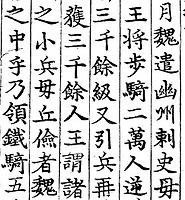 月魏遣幽州刺史毋
王将步騎二萬人逆
三千餘級又引兵再
獲三千餘人王謂諸
之小兵毋丘儉者魏
之中乎乃領鐵騎五